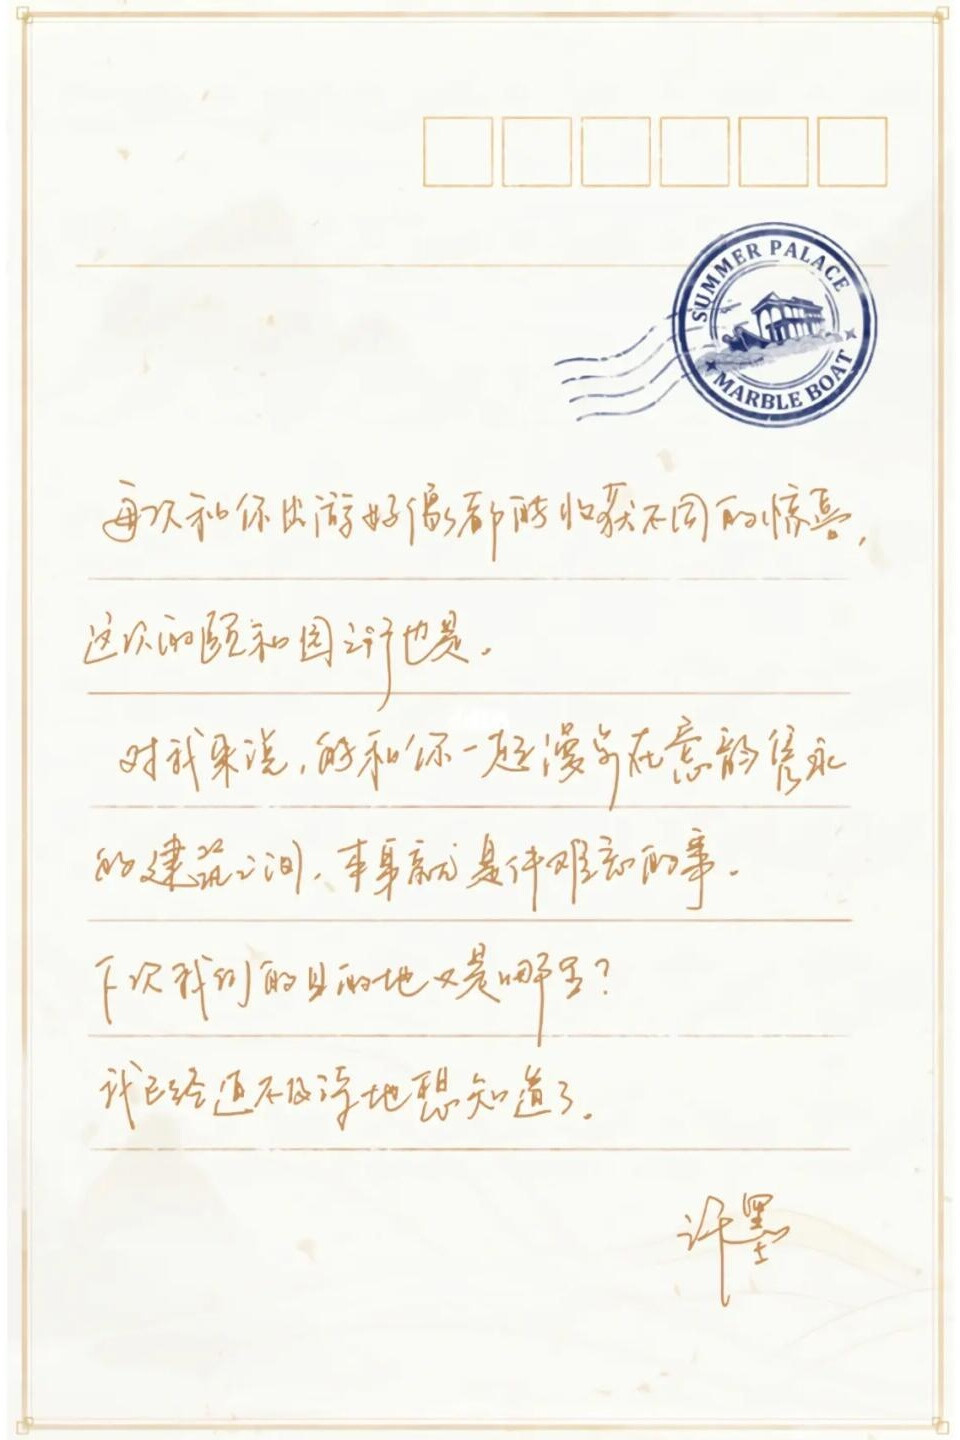 SUMMER PALACE
MARBLE BOAT
每次和你出游好像都能收获不同的惊喜，
这次的颐和园之行也是。
对我来说，能和你一起漫步在意韵隽永
的建筑之间，本身就是件难忘的事。
下次我们的目的地又是哪里？
我已经迫不及待地想知道了。
许墨